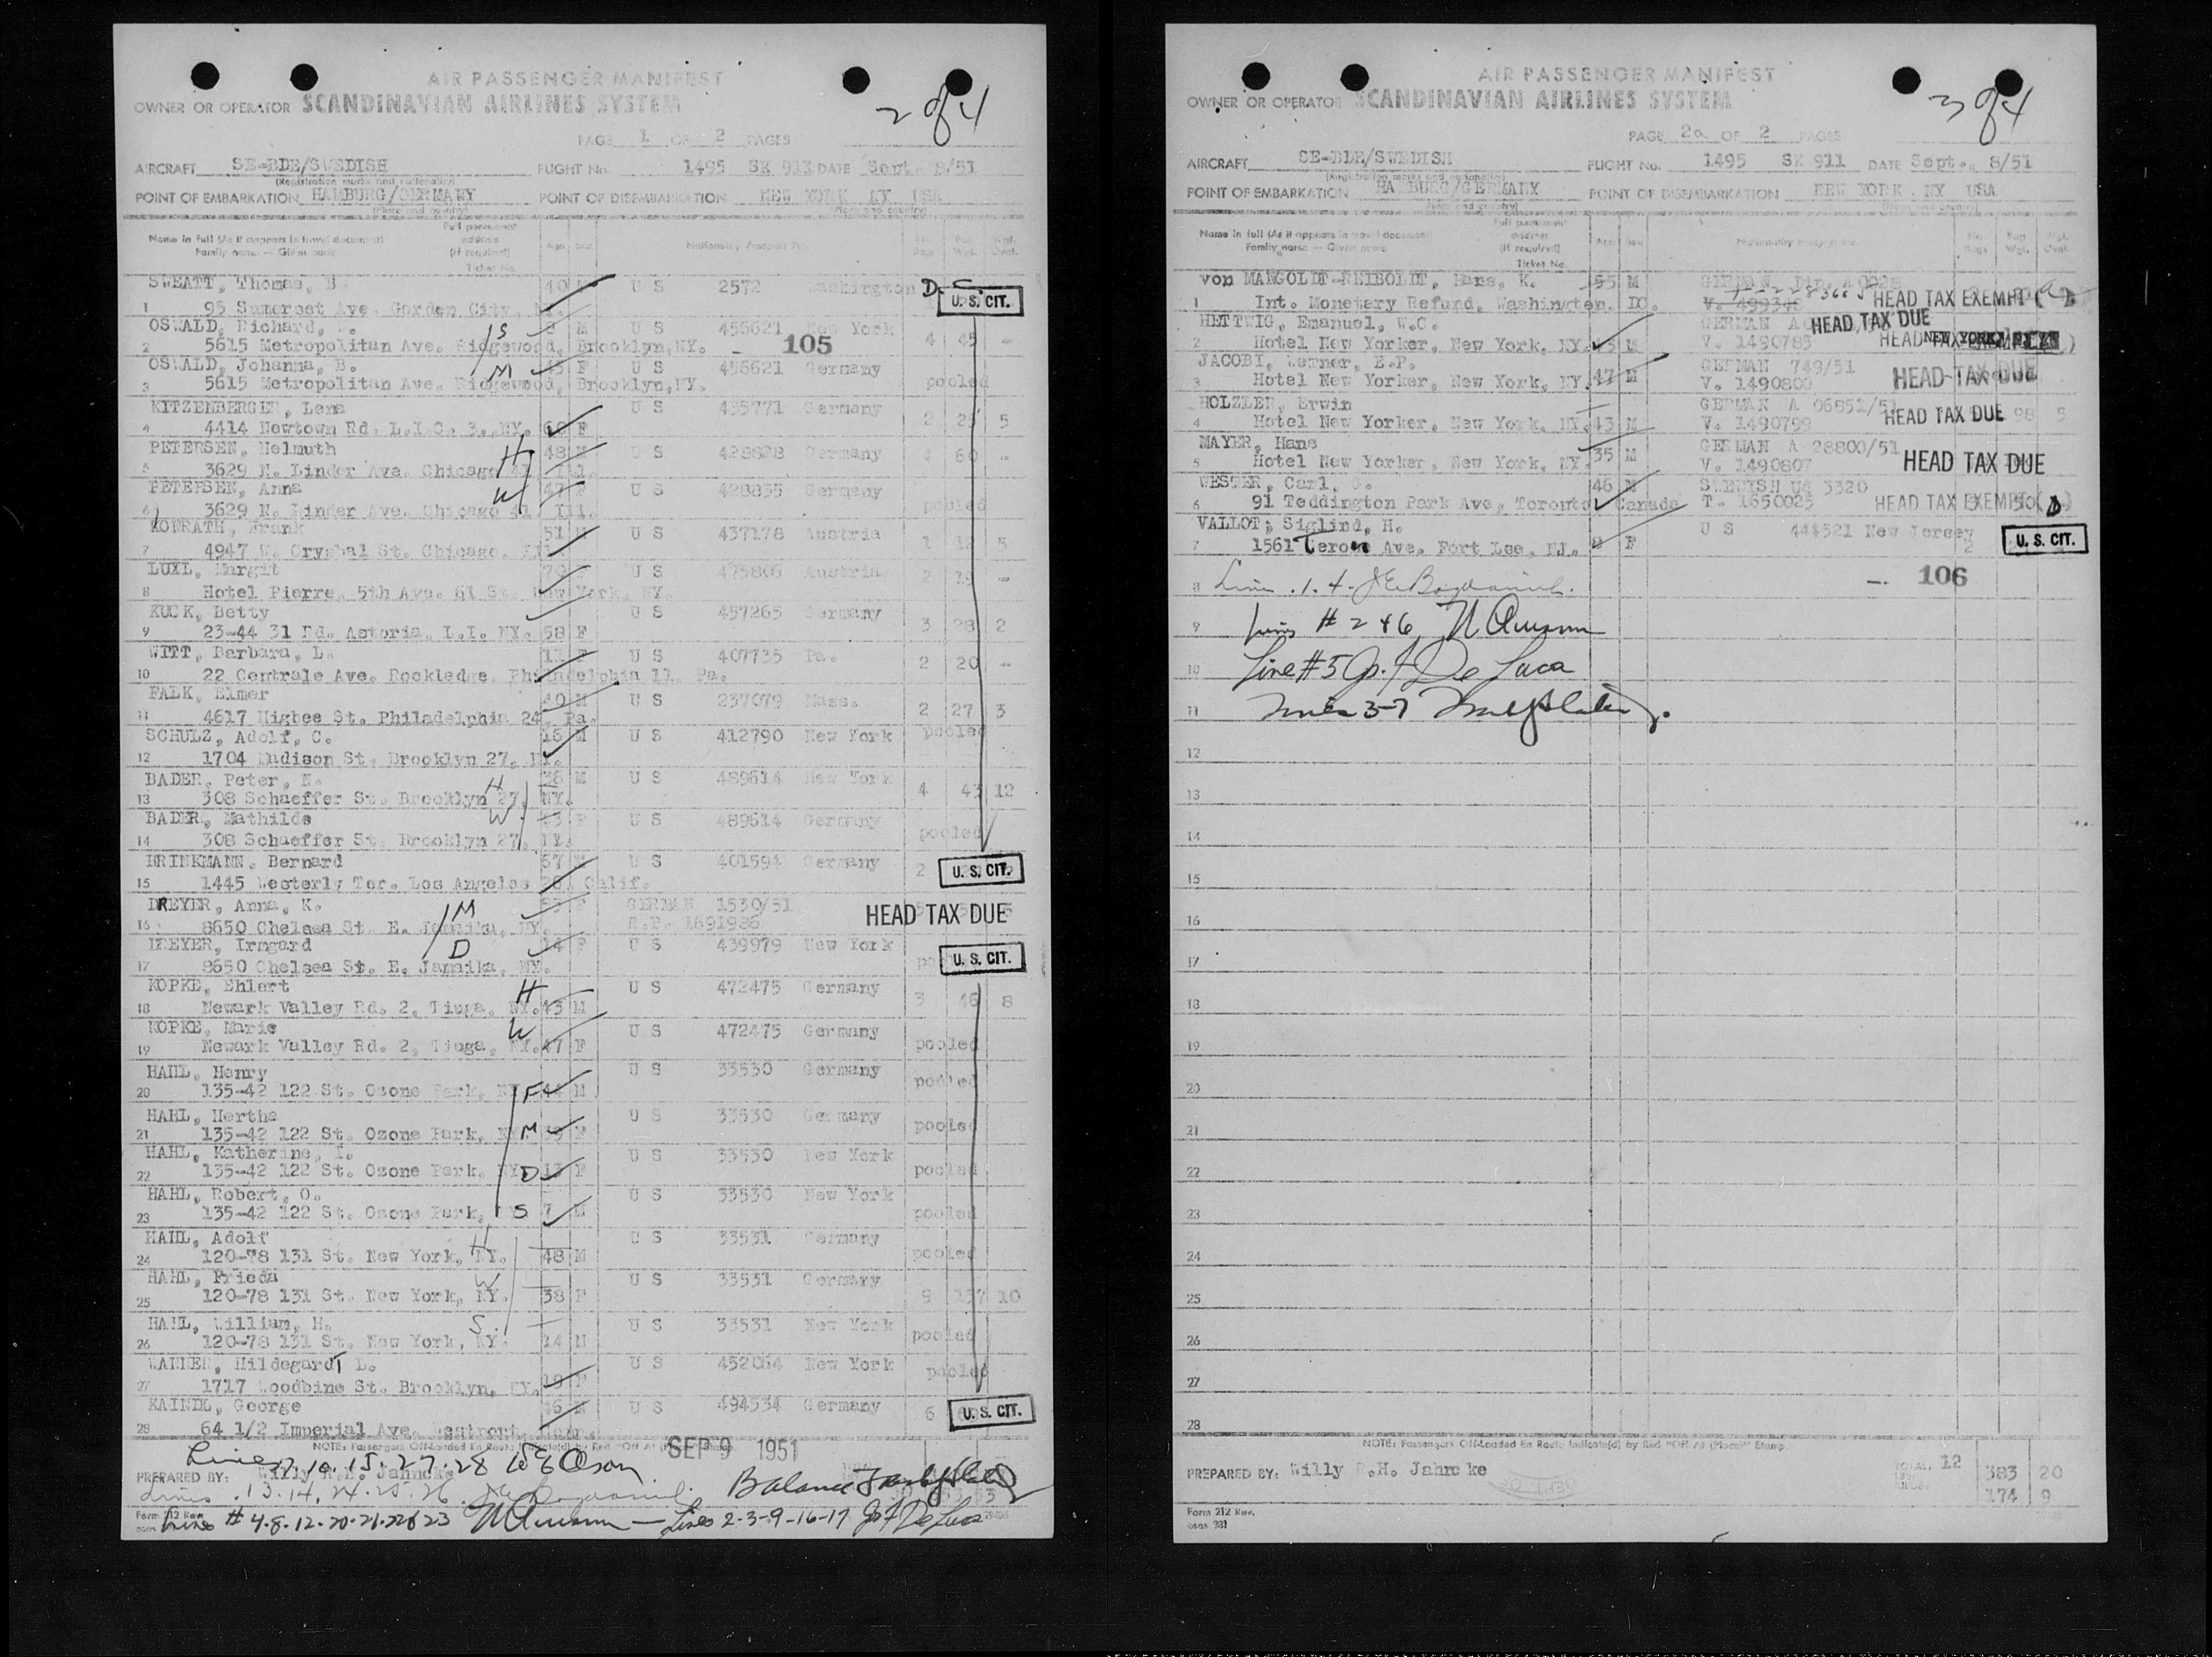 AIR PASSENGER MANIFEST
OWNER OR OPERATOR SCANDINAVIAN AIRLINES SYSTEM
2 of 4
PAGE 1 OF 2 PAGES
AIRCRAFT SE-BDE/SWEDISH FLIGHT No. 1495 SK 911 DATE Sept. 8/51
(Registration marks and nationality)
POINT OF EMBARKATION HAMBURG/GERMANY POINT OF DISEMBARKATION NEW YORK NY USA
(Place and country) (Place and country)
Name in full (As it appears in travel document) Full permanent address
Family name — Given name (if required)
Ticket No. Age Sex Nationality Passport No.
SWEATT, Thomas, 40 U S 2572 Washington D. C.
1 95 Somerset Ave. Garden City, U. S. CIT.
OSWALD, Richard, S M U S 456621 New York
2 5615 Metropolitan Ave. Ridgewood, Brooklyn, NY. - 105 4 45 -
OSWALD, Johanna, B. M F U S 456621 Germany
3 5615 Metropolitan Ave. Ridgewood, Brooklyn, NY. pooled
KITZENBERGER, Lena U S 435771 Germany
4 4414 Newtown Rd. L.I.C. 3., NY. F 2 25 5
PETERSEN, Helmuth H 48 M U S 428828 Germany 4 60 -
5 3629 N. Linder Ave. Chicago 41 Ill.
PETERSEN, Anna W 47 F U S 428835 Germany
6 3629 N. Linder Ave. Chicago 41. Ill. pooled
KONRATH, Frank 51 M U S 437178 Austria
7 4947 W. Crystal St. Chicago. 1 5
LUXL, Margit 70 F U S 475805 Austria 2 19 -
8 Hotel Pierre, 5th Ave. 61 St. New York, NY.
KUCK, Betty U S 457265 Germany
9 23-44 31 Rd. Astoria, L.I. NY. 58 F 3 28 2
WITT, Barbara, L. 11 F U S 407735 Pa.
10 22 Centrale Ave. Rockledge, Philadelphia 11. Pa. 2 20 -
FALK, Elmer 40 M U S 237079 Mass.
11 4617 Higbee St. Philadelphia 24, Pa. 2 27 3
SCHULZ, Adolf, C. 16 M U S 412790 New York pooled
12 1704 Madison St. Brooklyn 27, NY.
BADER, Peter, N. H 36 M U S 489614 New York
13 308 Schaeffer St. Brooklyn 27, NY. 4 43 12
BADER, Mathilde W F U S 489614 Germany
14 308 Schaeffer St. Brooklyn 27, NY. pooled
BRINKMANN, Bernard 67 U S 401594 Germany
15 1445 Westerly Ter. Los Angeles 26, Calif. 2 U. S. CIT.
DREYER, Anna, K. M 53 F GERMAN 1530/51
16 8650 Chelsea St. E. Jamaika, NY. R.P. 1691986 HEAD TAX DUE
DREYER, Irmgard D 14 F U S 439979 New York
17 8650 Chelsea St. E. Jamaika, NY. U. S. CIT.
KOPKE, Ehlert H U S 472475 Germany
18 Newark Valley Rd. 2, Tioga, NY. 43 M 3 46 8
KOPKE, Marie W U S 472475 Germany
19 Newark Valley Rd. 2, Tioga, NY. 47 F pooled
HAHL, Henry U S 33530 Germany
20 135-42 122 St. Ozone Park, NY. F 44 M pooled
HAHL, Hertha U S 33530 Germany
21 135-42 122 St. Ozone Park, NY. M F pooled
HAHL, Katherine, I. U S 33530 New York
22 135-42 122 St. Ozone Park, NY. D F pooled
HAHL, Robert, O. U S 33530 New York
23 135-42 122 St. Ozone Park, S 7 M pooled
HAHL, Adolf H U S 33531 Germany
24 120-78 131 St. New York, NY. 48 M pooled
HAHL, Frieda W U S 33531 Germany
25 120-78 131 St. New York, NY. 38 F 9 157 10
HAHL, William, H. S. U S 33531 New York
26 120-78 131 St. New York, NY. 14 M pooled
WANNER, Hildegard, L. U S 452064 New York
27 1717 Woodbine St. Brooklyn, NY. 19 F pooled
KAINDL, George 46 M U S 494534 Germany
28 64 1/2 Imperial Ave. Westport, Conn. 6 U. S. CIT.
NOTE: Passengers Off-Loaded En Route
SEP 9 1951
PREPARED BY: Willy R.H. Jahncke
Lines 13.14.24.25.26
Form 212 Rev.
Lines # 4.8.12.20.21.22 & 23 — Lines 2-3-9-16-17 De Luca
AIR PASSENGER MANIFEST
OWNER OR OPERATOR SCANDINAVIAN AIRLINES SYSTEM
3 of 4
PAGE 2a OF 2 PAGES
AIRCRAFT SE-BDE/SWEDISH FLIGHT No. 1495 SK 911 DATE Sept. 8/51
POINT OF EMBARKATION HAMBURG/GERMANY POINT OF DISEMBARKATION NEW YORK NY USA
Name in full (As it appears in travel document) Full permanent address
Family name — Given name (if required)
Ticket No.
von MANGOLDT-REIBOLDT, Hans, K. 55 M GERMAN
1 Int. Monetary Refund, Washington. DC. HEAD TAX EXEMPT
HETTWIG, Emanuel, W.C. GERMAN HEAD TAX DUE
2 Hotel New Yorker, New York, NY. M V. 1490785
JACOBI, Werner, E.P. 47 M GERMAN 749/51
3 Hotel New Yorker, New York, NY. V. 1490800 HEAD TAX DUE
HOLZLER, Erwin GERMAN A 06851/51
4 Hotel New Yorker, New York, NY. 43 M V. 1490799 HEAD TAX DUE 98 5
MAYER, Hans 35 M GERMAN A 28800/51
5 Hotel New Yorker, New York, NY. V. 1490807 HEAD TAX DUE
WESTER, Carl, 46 M SWEDISH 3320
6 91 Teddington Park Ave, Toronto Canada T. 1650025 HEAD TAX EXEMPT
VALLOT, Siglind, H. U S 444521 New Jersey
7 1561 Ave. Fort Lee, NJ. F 2 U. S. CIT.
8 -. 106
9 Lines # 2 & 6
10 Line #5 De Luca
11 3-7
12
13
14
15
16
17
18
19
20
21
22
23
24
25
26
27
28
NOTE: Passengers Off-Loaded En Route Indicate(d) by Red "Off At (Place)" Stamp.
PREPARED BY: Willy R.H. Jahncke TOTAL 12 383 20
174 9
Form 212 Rev.
osas 381